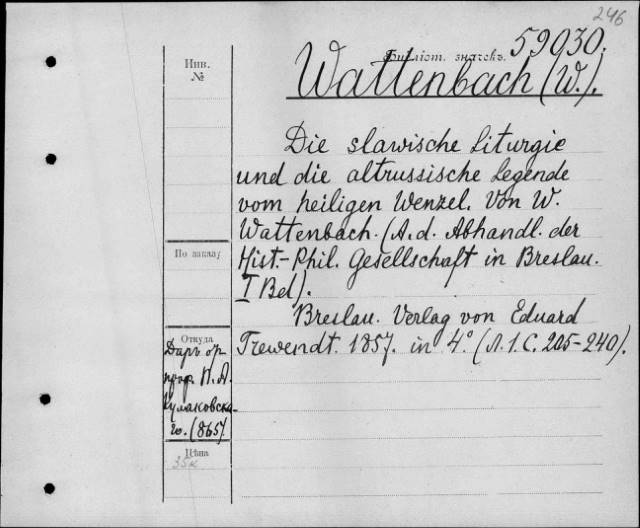 246
59030.
Библіот. значекъ.
Wattenbach (W.).
Инв.
№
Die slawische Liturgie
und die altrussische Legende
vom heiligen Wenzel. Von W.
Wattenbach. (A. d. Abhandl. der
Hist.-Phil. Gesellschaft in Breslau.
I Bd).
Breslau. Verlag von Eduard
Trewendt. 1857. in 4° (Л. 1. С. 205-240).
По заказу
Откуда
Даръ от
проф. П. А.
Кулаковска-
го. (865)
Цѣна
35к